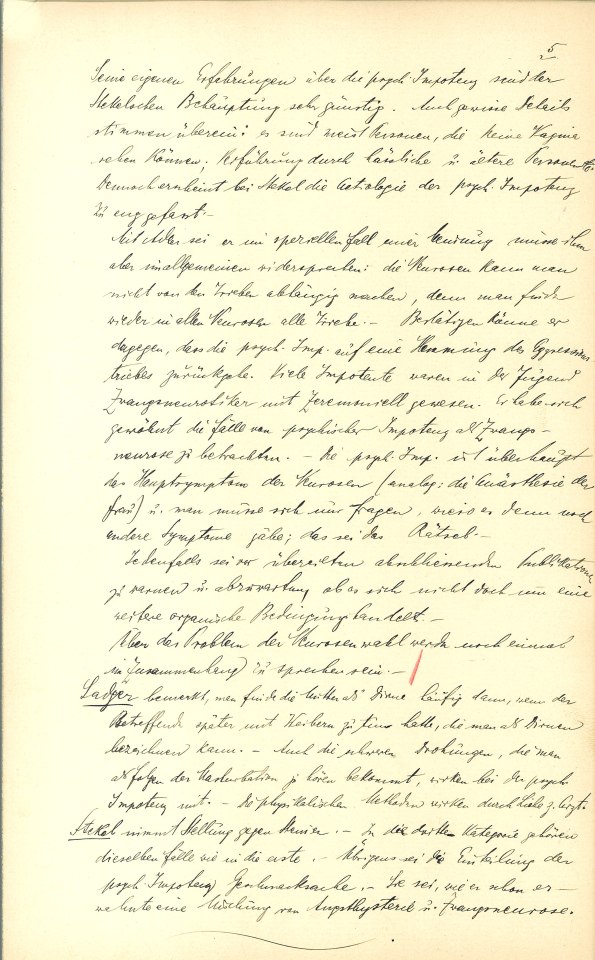 5
Seine eigenen Erfahrungen über die psych. Impotenz sind der
Stekelschen Behauptung sehr günstig. Auch gewisse Details
stimmen überein: es sind meist Personen, die keine Vagina
sehen können; Verführung durch hässliche u. ältere Personen etc.
Dennoch erscheint bei Stekel die Aetiologie der psych. Impotenz
zu eng gefasst.-
Mit Adler sei er im speziellen Fall einer Meinung müsse ihm
aber im allgemeinen widersprechen: die Neurosen kann man
nicht von den Trieben abhängig machen, denn man finde
wieder in allen Neurosen alle Triebe.- Bestätigen könne er
dagegen, dass die psych. Imp. auf eine Hemmung des Aggressions
triebes zurückgehe. Viele Impotente waren in der Jugend
Zwangsneurotiker mit Zeremoniell gewesen. Er habe sich
gewöhnt die Fälle von psychischer Impotenz als Zwangs-
neurose zu betrachten. - Die psych. Imp. ist überhaupt
das Hauptsymptom der Neurosen (analog: die Anästhesie der
Frau) u. man müsse sich nur fragen, wieso es denn noch
andere Symptome gäbe; das sei das Rätsel.-
Jedenfalls sei vor übereilten abschliessenden Publikationen
zu warnen u. abzuwarten, ob es sich nicht doch um eine
weitere organische Bedingung handelt.-
Über das Problem der Neurosenwahl werde noch einmal
im Zusammenhang zu sprechen sein.-
Sadger bemerkt, man finde die Mutter als Dirne häufig dann, wenn der
Betreffende später mit Weibern zu tun hatte, die man als Dirnen
bezeichnen kann. - Auch die schweren Drohungen, die man
als Folgen der Masturbation zu hören bekommt, wirken bei der psych.
Impotenz mit. - Die physikalischen Methoden wirken durch Liebe z. Arzt.
Stekel nimmt Stellung gegen Steiner. - In die dritte Kategorie gehören
dieselben Fälle wie in die erste. - Übrigens sei die Einteilung der
psych. Impotenz Geschmacksache. - Sie sei, wie er schon er-
wähnte eine Mischung von Angsthysterie u. Zwangsneurose.